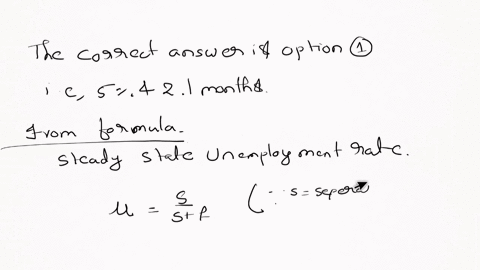 The correct answer is option ①
i e, 5%. & 2.1 months.
from formula.
steady state unemployment rate.
u = s/s+f (∵ s = sepera